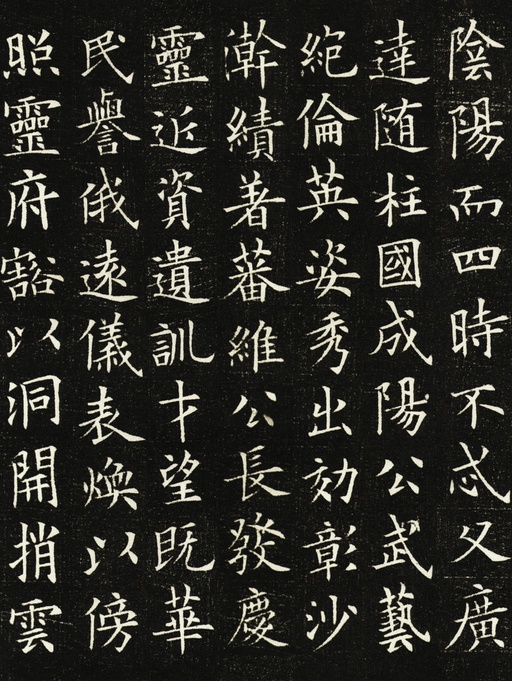 陰陽而四時不忒父廣
達随柱國成陽公武藝
絶倫英姿秀出効彰沙
漧績著蕃維公長發慶
靈近資遺訓才望旣華
民譽俄遠儀表煥以傍
照靈府豁以洞開捎雲